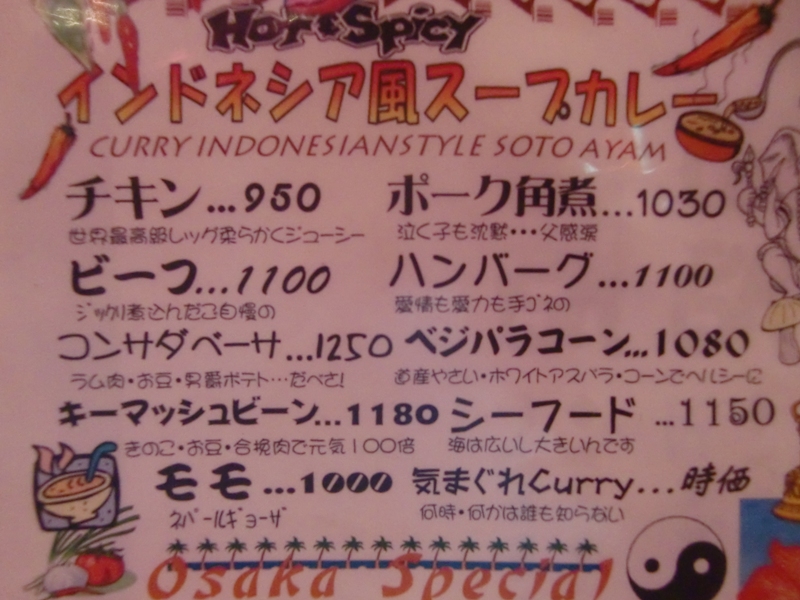 Hot & Spicy
インドネシア風スープカレー
CURRY INDONESIANSTYLE SOTO AYAM
チキン...950
世界最高級レッグ柔らかくジューシー
ポーク角煮...1030
泣く子も沈黙・・・父感涙
ビーフ...1100
ジックリ煮込んだご自慢の
ハンバーグ...1100
愛情も愛力も手ゴネの
コンサダベーサ...1250
ラム肉・お豆・男爵ポテト…だべさ!
ベジパラコーン...1080
道産やさい・ホワイトアスパラ・コーンでヘルシーに
キーマッシュビーン...1180
きのこ・お豆・合挽肉で元気100倍
シーフード...1150
海は広いし大きいんです
モモ...1000
ネパールギョーザ
気まぐれCurry...時価
何時・何かは誰も知らない
Osaka Special